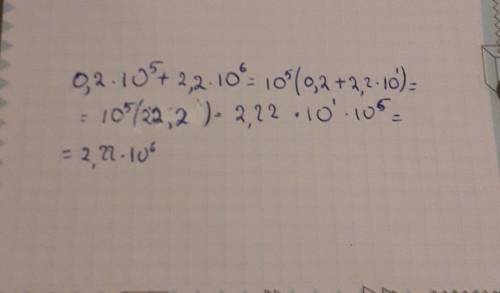 0,2 · 10⁵ + 2,2 · 10⁶ = 10⁵(0,2 + 2,2 · 10¹) =
= 10⁵(22,2) = 2,22 · 10¹ · 10⁵ =
= 2,22 · 10⁶